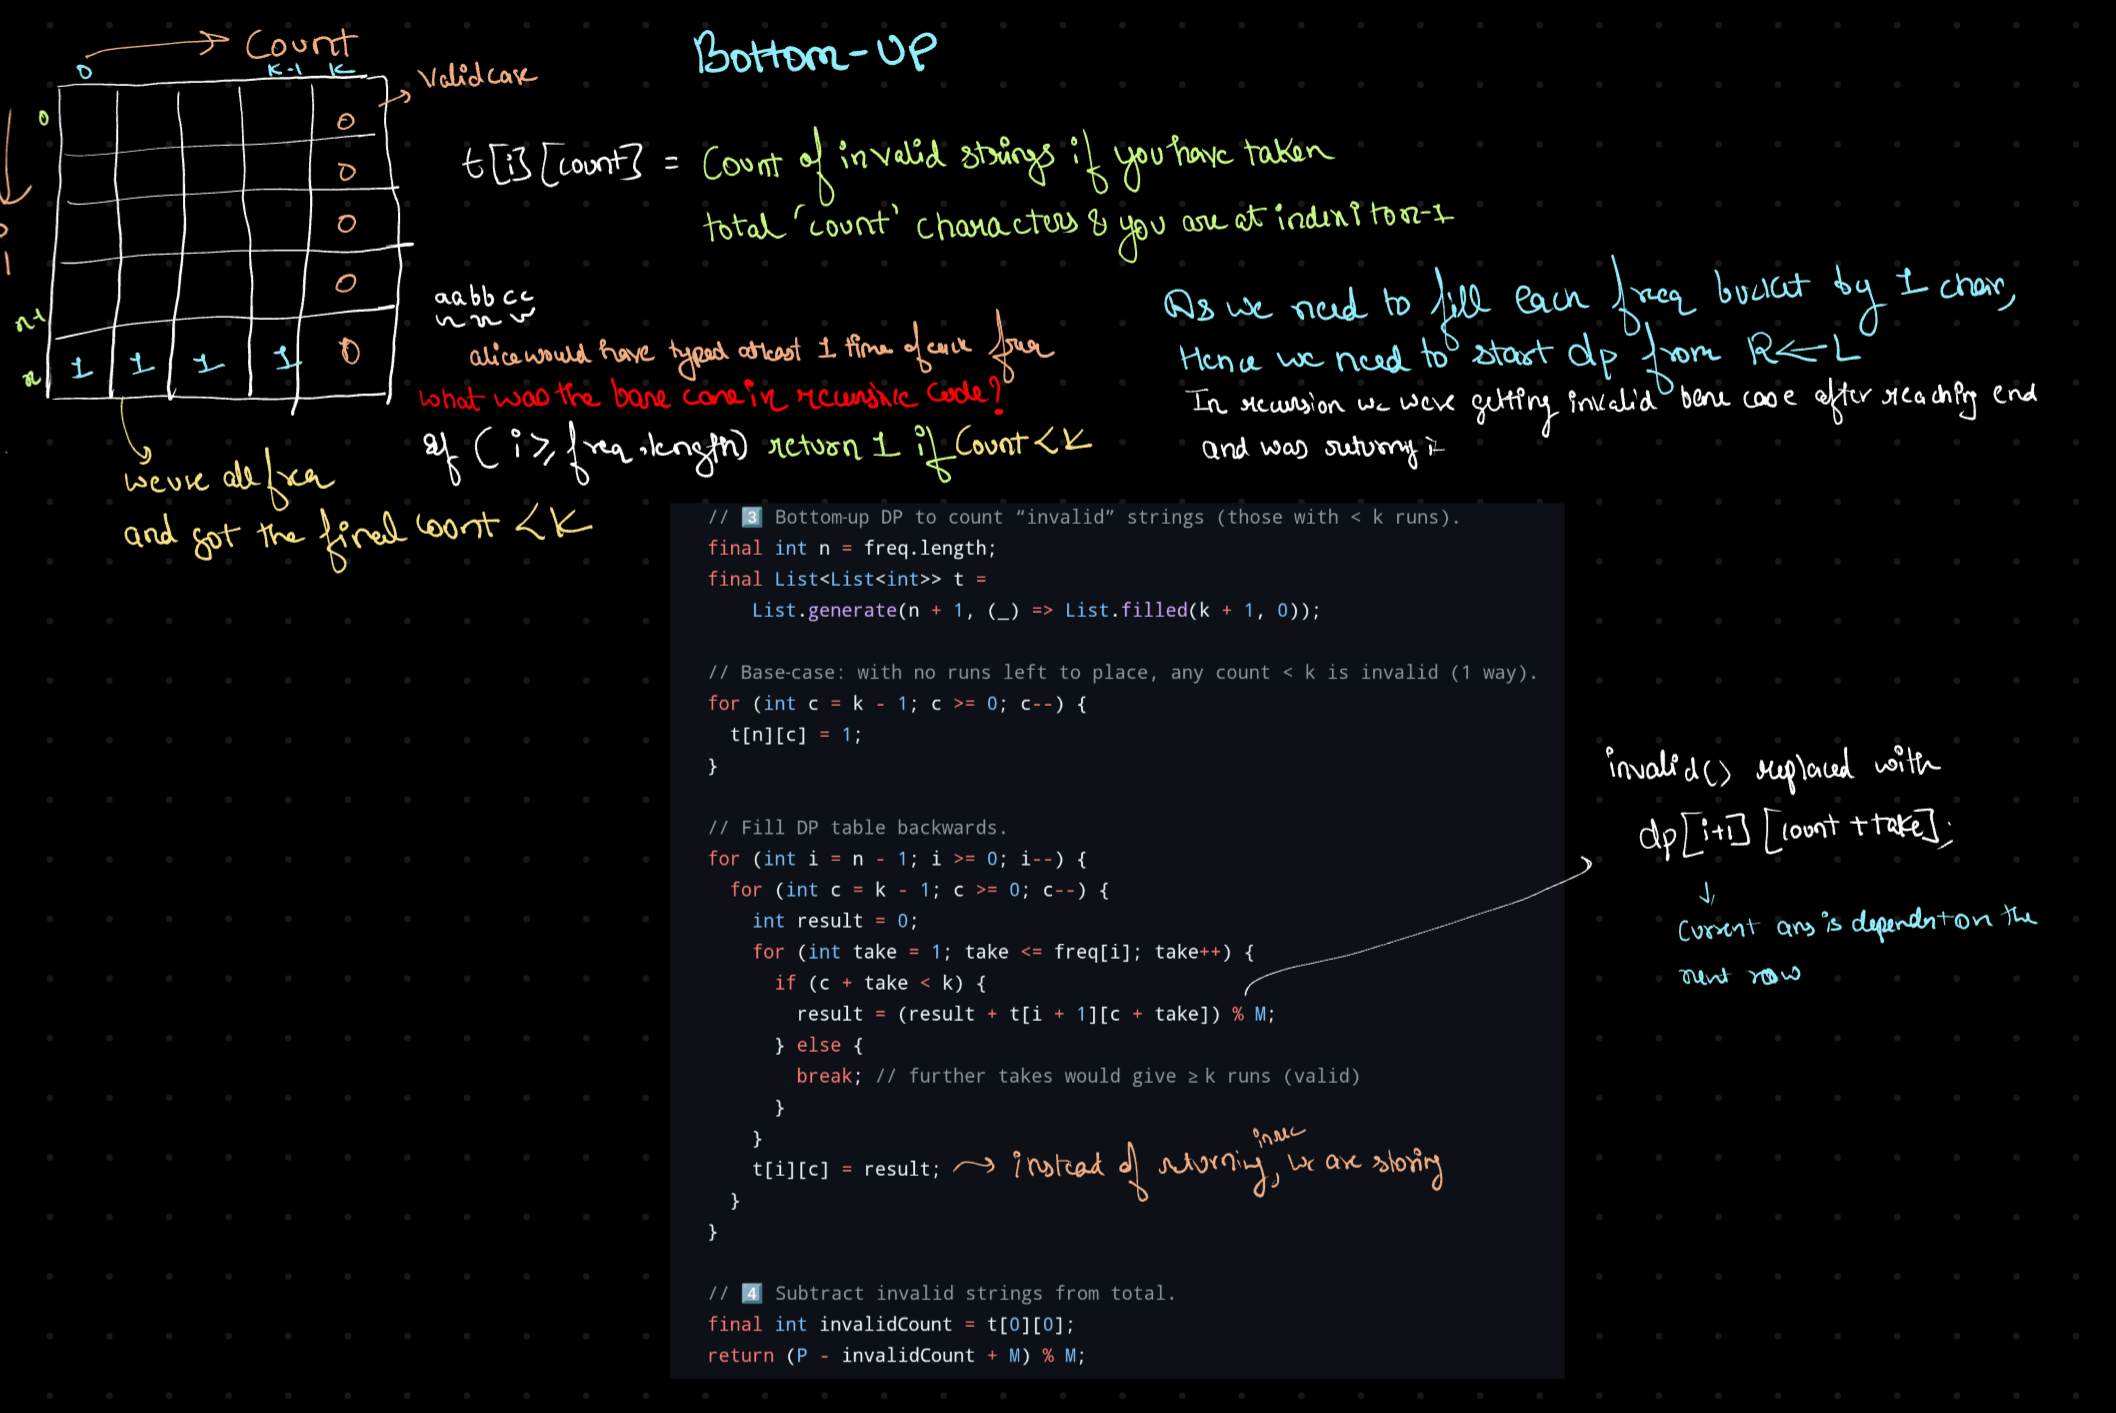 Bottom-UP
Count
0 K-1 K
valid case
0
i
n-1
n
0
0
0
0
1 1 1 1 0
t[i][count] = Count of invalid strings if you have taken
total 'count' characters & you are at index i to n-1
aabbcc
alice would have typed atleast 1 time of each freq
what was the base case in recursive code?
if (i >, freq.length) return 1 if Count < K
we use all freq
and got the final count < K
As we need to fill each freq bucket by 1 char,
Hence we need to start dp from R<-L
In recursion we were getting invalid base case after reaching end
and was returning 1
// 3️⃣ Bottom-up DP to count “invalid” strings (those with < k runs).
final int n = freq.length;
final List<List<int>> t =
List.generate(n + 1, (_) => List.filled(k + 1, 0));
// Base-case: with no runs left to place, any count < k is invalid (1 way).
for (int c = k - 1; c >= 0; c--) {
t[n][c] = 1;
}
// Fill DP table backwards.
for (int i = n - 1; i >= 0; i--) {
for (int c = k - 1; c >= 0; c--) {
int result = 0;
for (int take = 1; take <= freq[i]; take++) {
if (c + take < k) {
result = (result + t[i + 1][c + take]) % M;
} else {
break; // further takes would give ≥ k runs (valid)
}
}
t[i][c] = result; → instead of returning in rec, we are storing
}
}
// 4️⃣ Subtract invalid strings from total.
final int invalidCount = t[0][0];
return (P - invalidCount + M) % M;
invalid() replaced with
dp[i+1][count + take];
Current ans is dependnt on the
next row